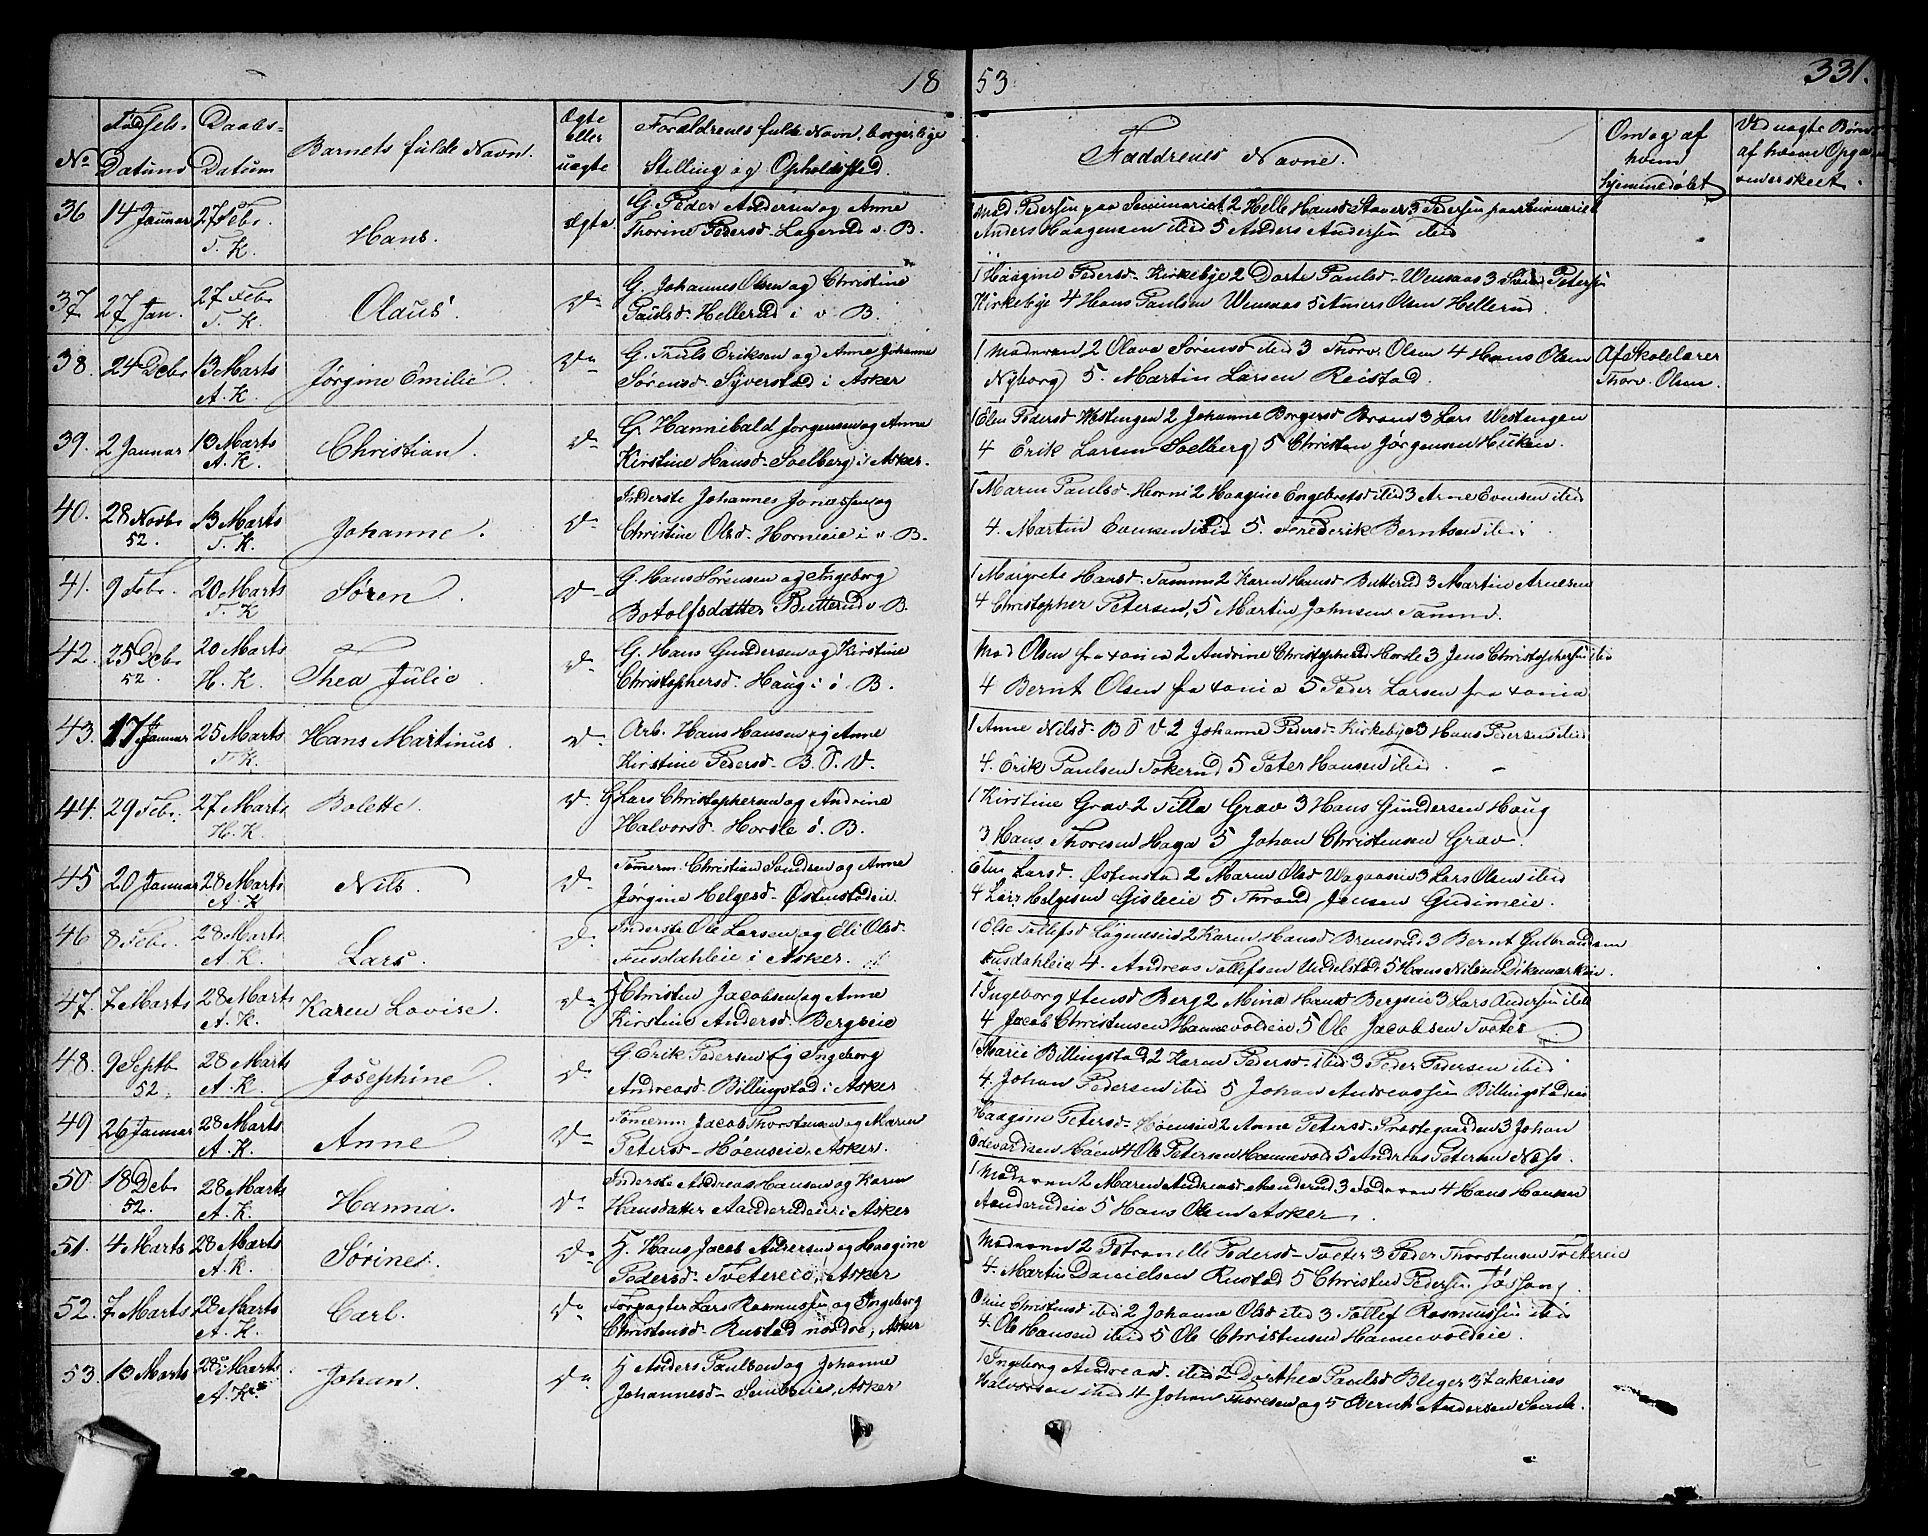 18 53 331.
No Fødsels-Datum Daabs-Datum Barnets fulde Navn. Ægte eller uægte Forældrenes fulde Navn, borgerlige Stilling og Opholdssted. Faddrenes Navne. Om og af hvem hjemmedøbt Ved uægte Børn af hvem Opgaven er skeet.
36 14 Januar 27 Febr. T. K. Hans. Ægte G. Peder Andersen og Anne
Thorine Pedersd. Lagerud v. B.
1 Mad Pedersen paa Seminariet 2 Helle Hansd Staver 3 Pedersen paa Seminariet
Anders Haagensen ibid 5 Anders Andersen ibid
37 27 Jan. 27 Febr T. K. Olaus. Do G. Johannes Olsen og Christine
Paulsd. Hellerud i v. B.
1 Haagine Pedersd. Kirkebye 2 Dorte Paulsd. Wensaas 3 Petersen
Kirkebye 4 Hans Paulsen Wensaas 5 Anders Olsen Hellerud.
38. 24 Debr 13 Marts A. K. Jørgine Emilie. Do G. Truls Eriksen og Anne Johanne
Sørensd. Syverstad i Asker
1 Moderen 2 Olava Sørensd ibid 3 Thorv. Olsen 4 Hans Olsen
Nyborg 5. Martin Larsen Reistad.
Af Skolelærer
Thorv. Olsen.
39. 2 Januar 13 Marts A. K. Christian. Do G. Hannibald Jørgensen og Anne
Kirstine Hansd. Solberg i Asker.
1 Elen Pedersd Westengen 2 Johanne Borgersd Brand 3 Lars Westengen
4 Erik Larsen Solberg 5 Christen Jørgensen Huken.
40. 28 Novbr 52. 13 Marts T. K. Johanne. Do Inderste Johannes Jonassen og
Christine Olsd. Hornieie i v. B.
1 Maren Paulsd. Horni 2 Haagine Engebretsd ibid 3 Arne Evensen ibid
4. Martin Evensen ibid 5. Frederik Berntsen ibid
41. 9 Febr. 20 Marts T. K. Søren. Do G. Hans Sørensen og Ingeborg
Botolfsdatter Butterud v. B.
1 Margrete Hansd. Tammen 2 Karen Hansd Butterud 3 Martin Arnesen
4 Christopher Petersen, 5 Martin Johnsen
42. 25 Debr 52. 20 Marts H. K. Thea Julie. Do G. Hans Gundersen og Kirstine
Christophersd. Haug i ø. B.
Mad Olsen fra Xania 2 Andrine Christophersd Horsle 3 Jens Christophersen ibid
4 Bernt Olsen fra Xania 5 Peder Larsen fra Xania
43. 17 Januar 25 Marts T. K. Hans Martinus. Do Arb. Hans Hansen og Anne
Kirstine Pedersd. B. S. V.
1 Anne Nilsd. B S V 2 Johanne Pedersd. Kirkebye 3 Hans Pedersen ibid
4. Erik Paulsen Tokerud 5 Peter Hansen ibid.
44. 29 Febr. 27 Marts H. K. Bolette. Do G. Lars Christophersen og Andrine
Halvorsd. Horsle ø. B.
1 Kirstine Grav 2 Silla Grav 3 Hans Gundersen Haug
3 Hans Thoresen Haga 5 Johan Christensen Grav.
45 20 Januar 28 Marts A. K. Nils. Do Tømerm. Christian og Anne
Jørgine Helgesd. Østenstadeie.
Elen Larsd. Østenstad 2 Maren Olsd. 3 Lars Olsen ibid
4 Lars Helgesen Gisleeie 5 Thrond Jensen Gudimeie.
46 8 Febr. 28 Marts A. K. Lars. Do Inderste Ole Larsen og Eli Olsd.
Fusdahleie i Asker.
1 Else Tollefsd 2 Karen Hansd Brensrud 3 Bernt Gulbrandsen
Fusdahleie 4. Andreas Tollefsen Undelstad 5 Hans Nilsen Dikemarkeie.
47. 7 Marts 28 Marts A. K. Karen Lovise. Do I Christen Jacobsen og Anne
Kirstine Andersd. Bergseie
1 Ingeborg Hansd Berg 2 Mina Hansd Bergseie 3 Lars Andersen ibid
4 Jacob Christensen Hannevoldeie 5 Ole Jacobsen Tveter
48. 9 Septb 52. 28 Marts A. K. Josephine. Do G Erik Pedersen og Ingeborg
Andreasd. Billingstad i Asker
1 Marie Billingstad 2 Karen Pedersd. ibid 3 Peder Pedersen ibid
4. Johan Pedersen ibid 5 Johan Andreassen Billingstadeie
49 26 Januar 28 Marts A. K. Anne. Do Tømerm Jacob Thorstensen og Maren
Petersd. Høenseie, Asker.
Haagine Petersd. Høenseie 2 Anne Petersd. Prestegaarden 3 Johan
Edevardsen Høen 4 Ole Petersen Hannevold 5 Andreas Petersen Næss.
50. 18 Debr 52. 28 Marts A. K. Hanna. Do Inderste Andreas Hansen og Karen
Hansdatter Aanderudeie i Asker
1 Moderen 2 Maren Andreasd Aanderud 3 Faderen 4 Hans Hansen
Aanderudeie 5 Hans Olsen Asker.
51. 4 Marts 28 Marts A. K. Sørine. Do I. Hans Jacob Andersen og Haagine
Pedersd. Tvetereie, Asker
Moderen 2 Petronelle Pedersd. Tveter 3 Peder Thorstensen Tvetereie
4. Martin Danielsen Rustad 5 Christen Pedersen
52. 7 Marts 28 Marts A. K. Carl. Do Forpagter Lars Rasmussen og Ingeborg
Christensd. Rustad nordre, Asker
Oline Christensd ibid 2 Johanne Olsd ibid 3 Tollef Rasmussen ibid
4. Ole Hansen ibid 5 Ole Christensen Hannevoldeie.
53. 13 Marts 28 Marts A. K. Johan. Do I Anders Paulsen og Johanne
Johannesd. Semseie, Asker
1 Ingeborg Andreasd. ibid 2 Dorthea Paulsd Bleger 3 Zakarias
Halvorsen ibid 4 Johan Thoresen og 5 Bernt Andersen